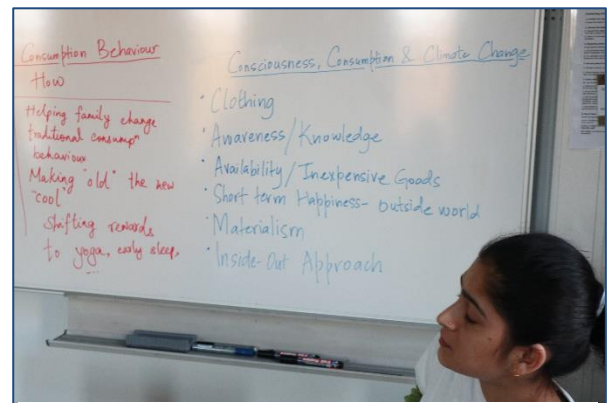 Consumption Behaviour
How
Helping family change
traditional consumpn
behaviour
Making "old" the new
"cool"
Shifting rewards
to yoga, early sleep,
Consciousness, Consumption & Climate Change
• Clothing
• Awareness/Knowledge
• Availability/Inexpensive Goods
• Short term Happiness- outside world
• Materialism
• Inside-Out Approach